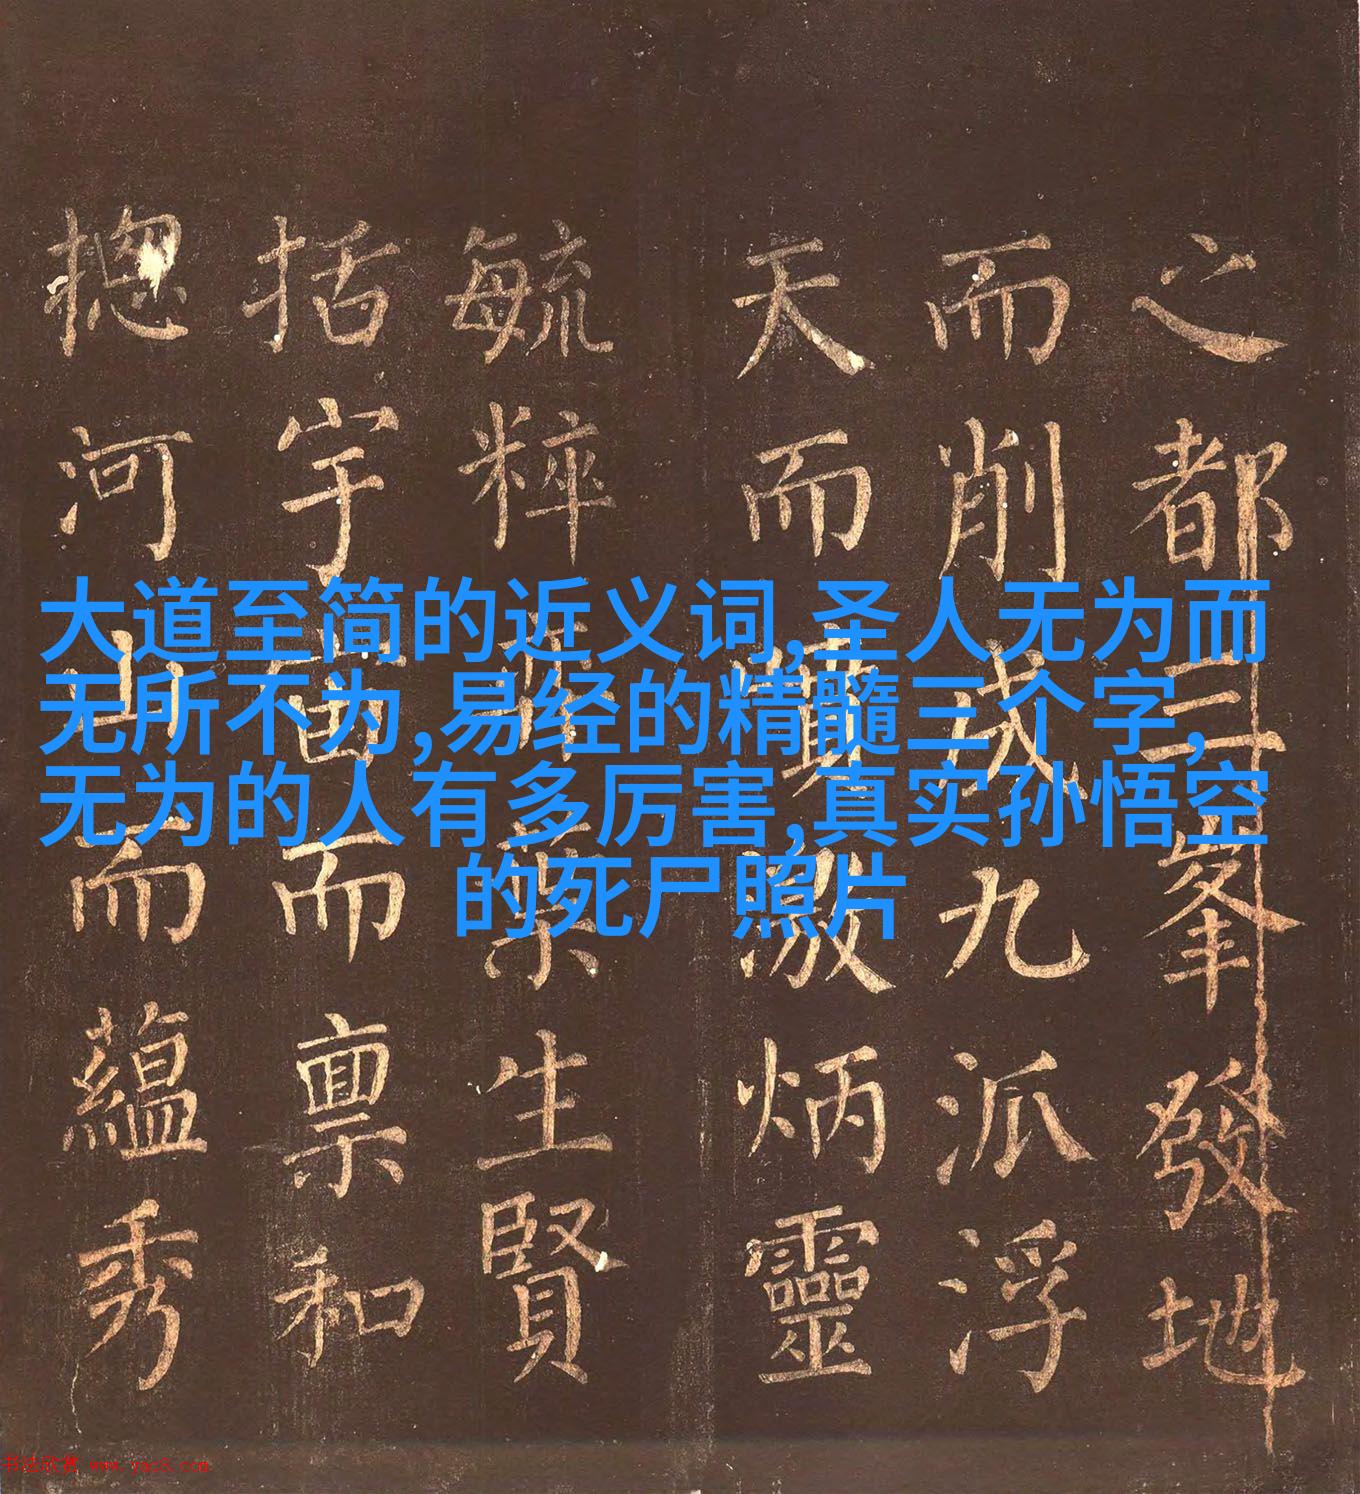 之都三峯發地
而削成九派浮
天而噴激炳靈
毓粹葉生賢
括宇宙而禀和
揔河山而蘊秀
大道至简的近义词,圣人无为而
无所不为,易经的精髓三个字,
无为的人有多厉害,真实孙悟空
的死尸照片
书法欣赏 www.yac8.com